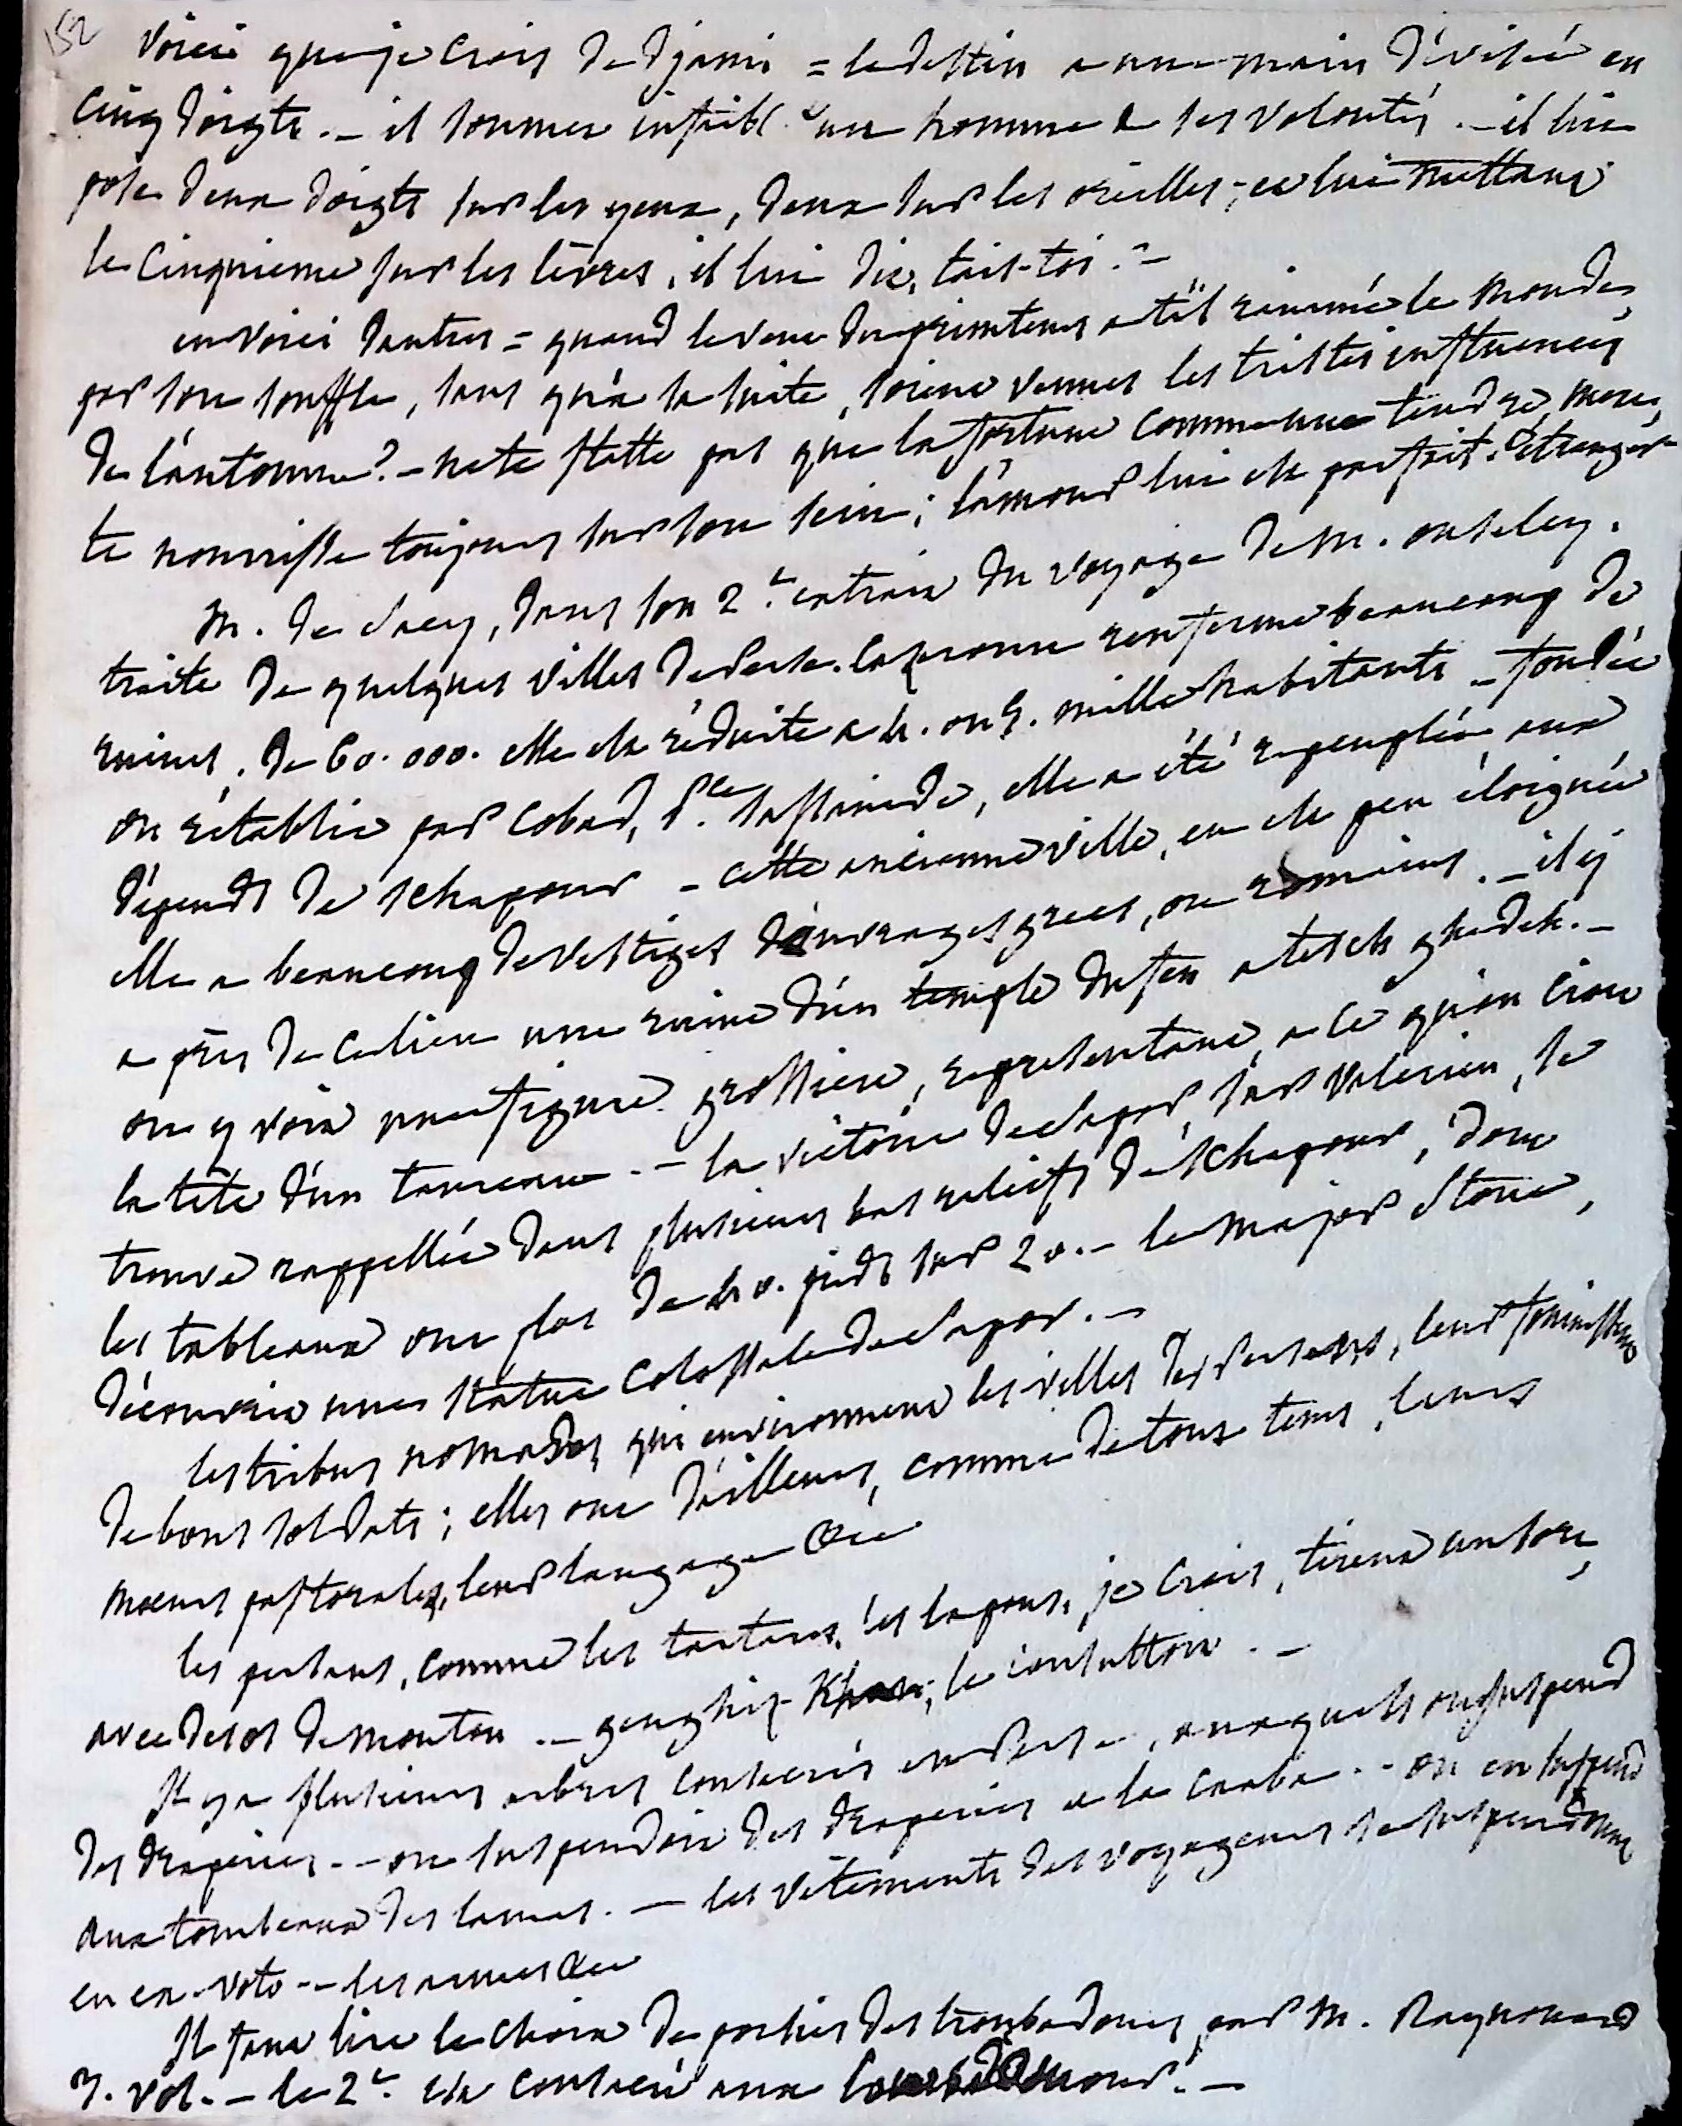 152
Voici que je crois de djami = le destin a une main divisée en
cinq doigts. - il soumet un homme a ses volontés. - il lui
pose deux doigts sur les yeux, deux sur les oreilles, et lui mettant
le cinquieme sur les lèvres, il lui dit, tais-toi. -
en voici dautres = quand le vent du printems a til ranimé le monde,
par son souffle, sans qu'a sa suite, soient venues les tristes influences
de l'automne? - ne te flatte pas que la fortune comme une tendre mere,
te nourrisse toujours sur son sein; l'amour lui est parfait. étranger
M. de Sacy, dans son 2.e extrait du voyage de M. ouseley.
traite de quelques villes de Perse. renferme beaucoup de
ruines. de 60.000. elle est réduite a 4. ou 5. mille habitants - fondée
ou rétablie par Cobad, P.ce Sassanide, elle a été repeuplée aux
dépends de Schapour - cette ancienne ville, en est peu éloignée
elle a beaucoup de vestiges d'ouvrages grecs, ou romains. - il y
a près de ce lieu une ruine d'un temple du feu atesch ghedeh. -
on y voit une figure grossiere, representant, a ce qu'on croit
la tête d'un taureau. - la victoire de Sapor, sur Valerien, se
trouve rappellée dans plusieurs bas reliefs de Schapour, dont
les tableaux ont plus de 40. pieds sur 20. - le major Stone,
découvrit une statue colossale de Sapor. -
les tribus nomades qui environnent les villes des Persans, leur fournissent
de bons soldats; elles ont d'ailleurs, comme de tous tems, leurs
mœurs pastorales, leur langage &c
les persans, comme les tartares, les lapons, je crois, tirent un sort,
avec des os de mouton. - genghiz Khan, le consultoit. -
Il y a plusieurs arbres consacrés en Perse, auxquels on suspend
des draperies. - on suspendoit des draperies a la caaba. - on en suspend
aux tombeaux des lamas. - les vêtements des voyageurs se suspendent
en ex-voto - les armes &c
Il faut lire le choix de poesies des troubadours, par M. Raynouard
3. vol. - le 2.e est consacré aux cours d'amour. -